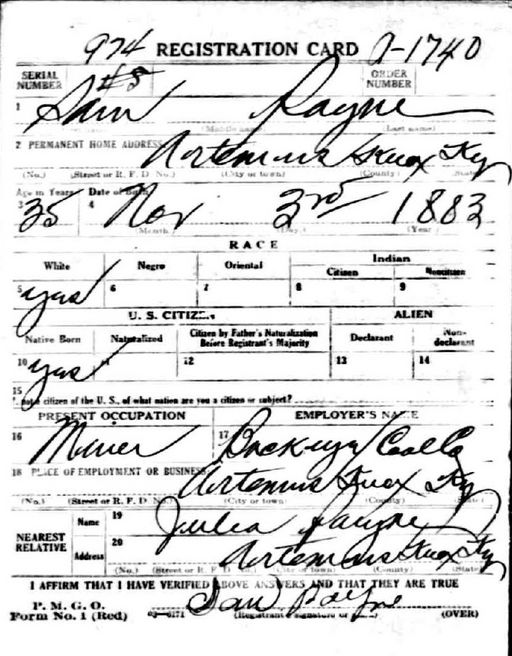 974 REGISTRATION CARD A-1740
SERIAL NUMBER #8 ORDER NUMBER
1 Sam Payne
(Middle name) (Last name)
2 PERMANENT HOME ADDRESS Artemus Knox Ky
(No.) (Street or R. F. D. No.) (City or town) (County) (State)
Age in Years Date of Birth
3 35 4 Nov 3rd 1883
(Month) (Day) (Year)
RACE
White Negro Oriental Indian
Citizen Noncitizen
5 yes 6 7 8 9
U. S. CITIZEN ALIEN
Native Born Naturalized Citizen by Father's Naturalization Before Registrant's Majority Declarant Non-declarant
10 yes 11 12 13 14
15
If not a citizen of the U. S., of what nation are you a citizen or subject?
PRESENT OCCUPATION EMPLOYER'S NAME
16 Miner 17 Coal Co
18 PLACE OF EMPLOYMENT OR BUSINESS Artemus Knox Ky
(No.) (Street or R. F. D. No.) (City or town) (County) (State)
NEAREST RELATIVE Name 19 Julia Payne
Address 20 Artemus Knox Ky
(No.) (Street or R. F. D. No.) (City or town) (County) (State)
I AFFIRM THAT I HAVE VERIFIED ABOVE ANSWERS AND THAT THEY ARE TRUE
P. M. G. O.
Form No. 1 (Red) 03-6171 Sam Payne (OVER)
(Registrant's signature or mark)